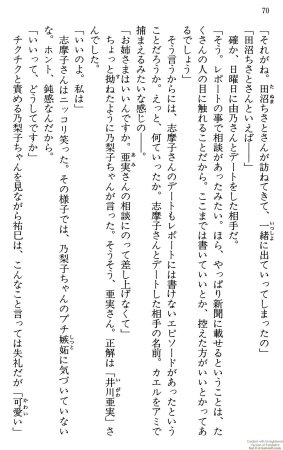 70
「それがね。田沼ちさとさんが訪ねてきて、一緒に出ていってしまったの」
「田沼ちさとさんといえば――」
確か、日曜日に由乃さんとデートをした相手だ。
「そう。レポートの事で相談があったみたい。ほら、やっぱり新聞に載せるということは、た
くさんの人の目に触れることだから。ここまでは書いていいとか、控えた方がいいとかってあ
るでしょう」
そう言うからには、志摩子さんのデートもレポートには書けないエピソードがあったという
ことだろうか。えっと、何ていったか。志摩子さんとデートした相手の名前。カエルをアミで
捕まえるみたいな感じの――。
「お姉さまはいいんですか。亜実さんの相談にのって差し上げなくて」
ちょっと拗ねたように乃梨子ちゃんが言った。そうそう、亜実さん。正解は「井川亜実」さ
んでした。
「いいのよ。私は」
志摩子さんはニッコリ笑った。その様子では、乃梨子ちゃんのプチ嫉妬に気づいていない
な。ホント、鈍感なんだから。
「いいって、どうしてですか」
チクチクと責める乃梨子ちゃんを見ながら祐巳は、こんなこと言っては失礼だが「可愛い」